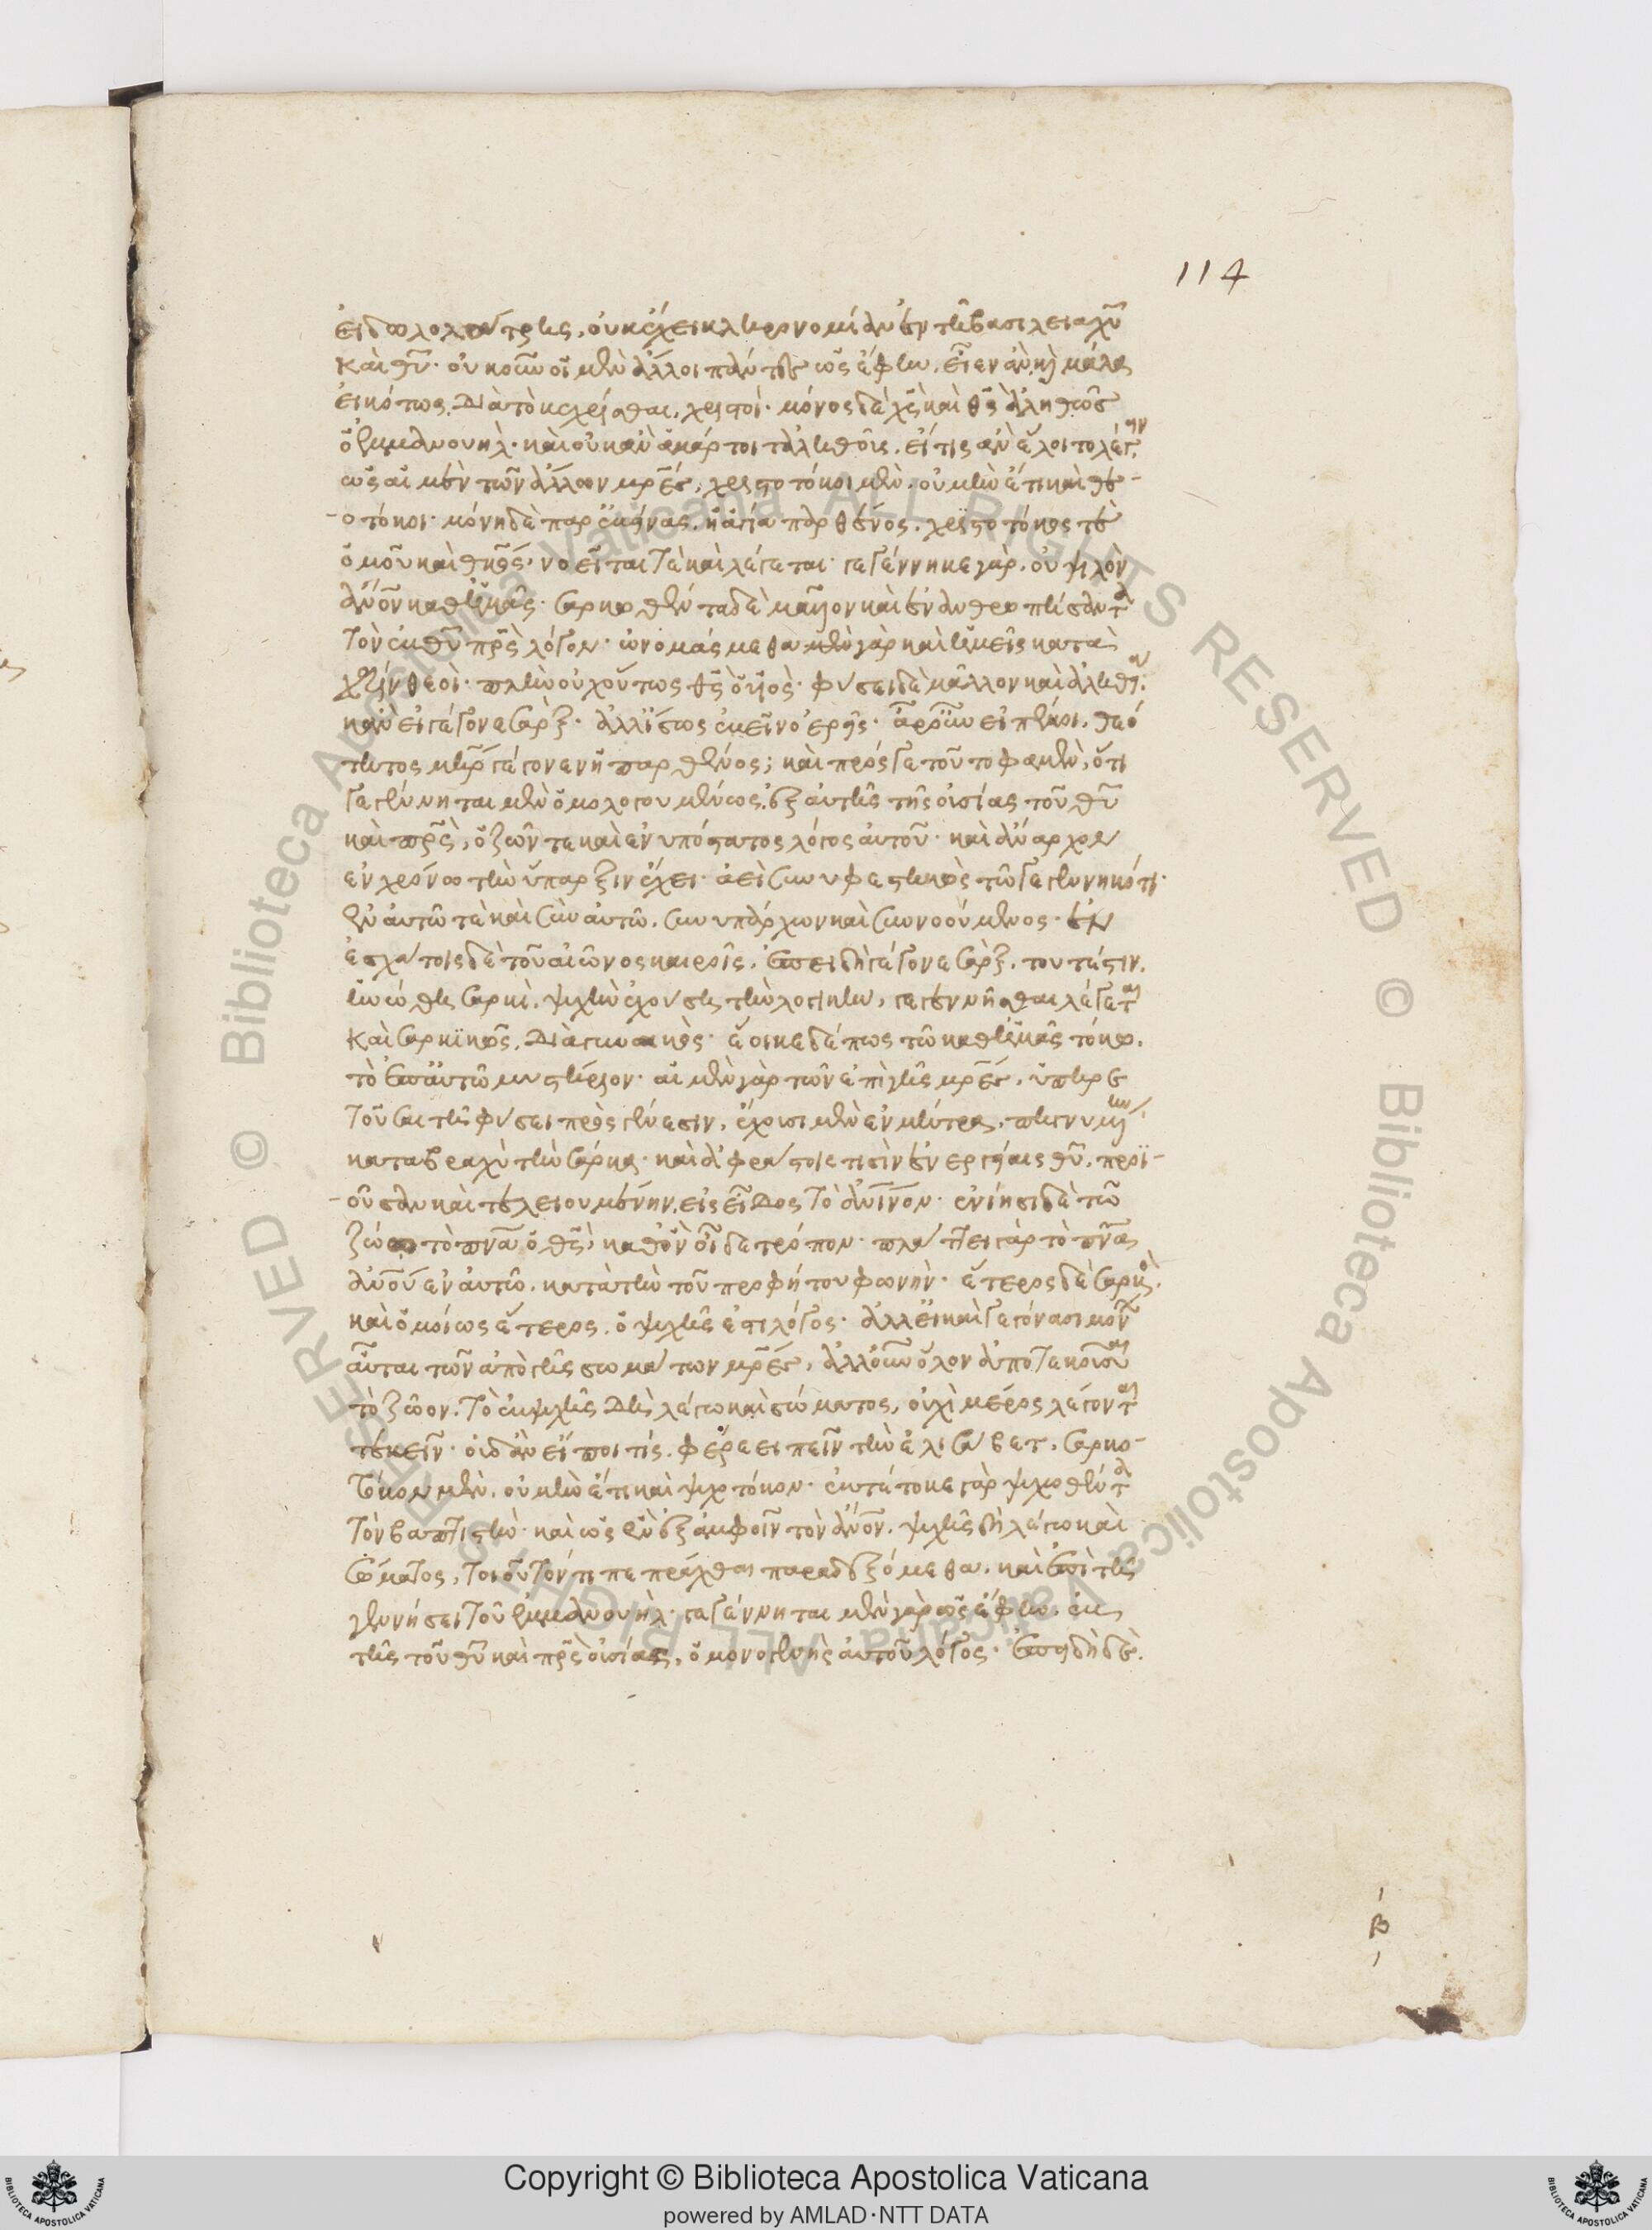 114
εἰδωλολάτρης, οὐκ ἔχει κληρονομίαν ἐν τῆ βασιλεία χυ
καὶ θυ. οὐκοῦν οἱ μὲν ἄλλοι πάντες ὡς ἔφην, εἶεν ἂν καὶ μάλα
εἰκότως, διὰ τὸ κεχρίσθαι, χριστοί. μόνος δὲ χς καὶ θς ἀληθῶς
ὁ ἐμμανουήλ. καὶ οὐκ ἂν ἁμάρτοι τἀληθοῦς, εἴ τις ἂν ἕλοιτο λέγειν
ὡς αἱ μὲν τῶν ἄλλων μρες, χριστοτόκοι μὲν, οὐ μὴν ἔτι καὶ θε-
-οτόκοι. μόνη δὲ παρ' ἐκείνας, ἡ ἁγία παρθένος, χριστοτόκος τε
ὁμοῦ καὶ θκος, νοεῖταί τε καὶ λέγεται. γεγέννηκε γὰρ, οὐ ψιλὸν
ἄνον καθ' ἡμᾶς. σαρκωθέντα δὲ μᾶλλον καὶ ἐνανθρωπήσαντα
τὸν ἐκ θυ πρς λόγον. ὠνομάσμεθα μὲν γὰρ καὶ ἡμεῖς κατὰ
χάριν θεοί. πλὴν οὐχ οὕτως θς ὁ υἱός. φύσει δὲ μᾶλλον καὶ ἀληθεία
κἂν εἰ γέγονε σάρξ. ἀλλ' ἴσως ἐκεῖνο ἐρεῖς. ἆρ' οὖν εἰπέ μοι, θεό
τητος μηρ γέγονεν ἡ παρθένος; καὶ πρός γε τοῦτο φαμὲν, ὅτι
γεγέννηται μὲν ὁμολογουμένως, ἐξ αὐτῆς τῆς οὐσίας τοῦ θυ
καὶ πρς, ὁ ζῶν τε καὶ ἐνυπόστατος λόγος αὐτοῦ. καὶ ἄναρχον
ἐν χρόνω τὴν ὕπαρξιν ἔχει. ἀεὶ συνυφεστηκὼς τῶ γεγεννηκότι.
ἐν αὐτῶ τὲ καὶ σὺν αὐτῶ, συνυπάρχων καὶ συννοούμενος. ἐν
ἐσχάτοις δὲ τοῦ αἰῶνος καιροῖς, ἐπειδὴ γέγονε σὰρξ, τουτέστιν,
ἡνώθη σαρκὶ, ψυχὴν ἐχούση τὴν λογικὴν, γεγεννῆσθαι λέγεται
καὶ σαρκικῶς, διὰ γυναικός. ἔοικε δέ πως τῶ καθ' ἡμᾶς τόκω,
τὸ ἐπ' αὐτῶ μυστήριον. αἱ μὲν γὰρ τῶν ἐπὶ γῆς μρες, ὑπηρε
τοῦσαι τῆ φύσει πρὸς γένεσιν, ἔχουσι μὲν ἐν μήτρα, πηγνυμένην
κατὰ βραχὺ τὴν σάρκα. καὶ ἀφράστοις τισὶν ἐνεργείαις θυ, προϊ-
-οῦσαν καὶ τελειουμένην, εἰς εἶδος τὸ ἀνινον. ἐνίησι δὲ τῶ
ζώω τὸ πνα ὁ θς, καθ' ὃν οἶδε τρόπον. πλάττει γὰρ τὸ πνα
ἀνου ἐν αὐτῶ, κατὰ τὴν τοῦ προφήτου φωνήν. ἕτερος δὲ σαρκὸς,
καὶ ὁμοίως ἕτερος, ὁ ψυχῆς ἐστὶ λόγος. ἀλλ' εἰ καὶ γεγόνασι μόνον
αὗται τῶν ἀπὸ γῆς σωμάτων μρες, ἀλλ' οὖν ὅλον ἀποτεκοῦσαι
τὸ ζῶον, τὸ ἐκ ψυχῆς δὴ λέγω καὶ σώματος, οὐχὶ μέρος λέγονται
τεκεῖν. οὐδ' ἂν εἴποι τίς, φέρε εἰπεῖν τὴν ἐλισάβετ, σαρκο-
τόκον μὲν, οὐ μὴν ἔτι καὶ ψυχοτόκον. ἐκτέτοκε γὰρ ψυχωθέντα
τὸν βαπτιστὴν. καὶ ὡς ἓν ἐξ ἀμφοῖν τὸν ἄνον, ψυχῆς δὴ λέγω καὶ
σώματος, τοιοῦτόν τι πεπρᾶχθαι παραδεξόμεθα, καὶ ἐπὶ τῆ
γεννήσει τοῦ ἐμμανουήλ. γεγέννηται μὲν γὰρ ὡς ἔφην, ἐκ
τῆς τοῦ θυ καὶ πρς οὐσίας, ὁ μονογενὴς αὐτοῦ λόγος. ἐπειδὴ δὲ.
β
Copyright © Biblioteca Apostolica Vaticana
powered by AMLAD·NTT DATA